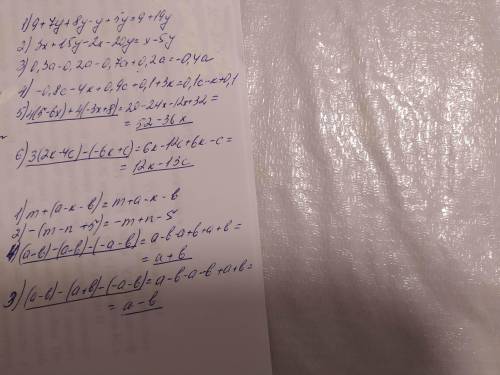 1) 9+7y+8y-y+5y=9+19y
2) 3x+15y-2x-20y=x-5y
3) 0,3a-0,2a-0,7a+0,2a=-0,4a
4) -0,8c-4к+0,9c+0,1+3к=0,1c-к+0,1
5) 4(5-6x)+4(-3x+8)=20-24x-12x+32=
=52-36x
6) 3(2к-4c)-(-6к+c)=6к-12c+6к-c=
=12к-13c
1) m+(a-к-в)=m+a-к-в
2) -(m-n+5)=-m+n-5
4) (a-в)-(a-в)-(-a-в)=a-в-a+в+a+в=
=a+в
3) (a-в)-(a+в)-(-a-в)=a-в-a-в+a+в=
=a-в